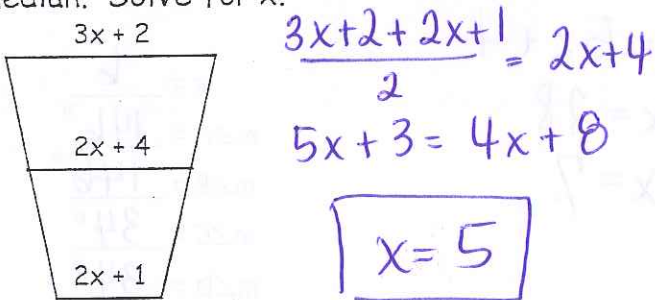 Solve for x.
3x + 2
2x + 4
2x + 1
3x+2+2x+1
2
= 2x+4
5x+3= 4x+8
x= 5